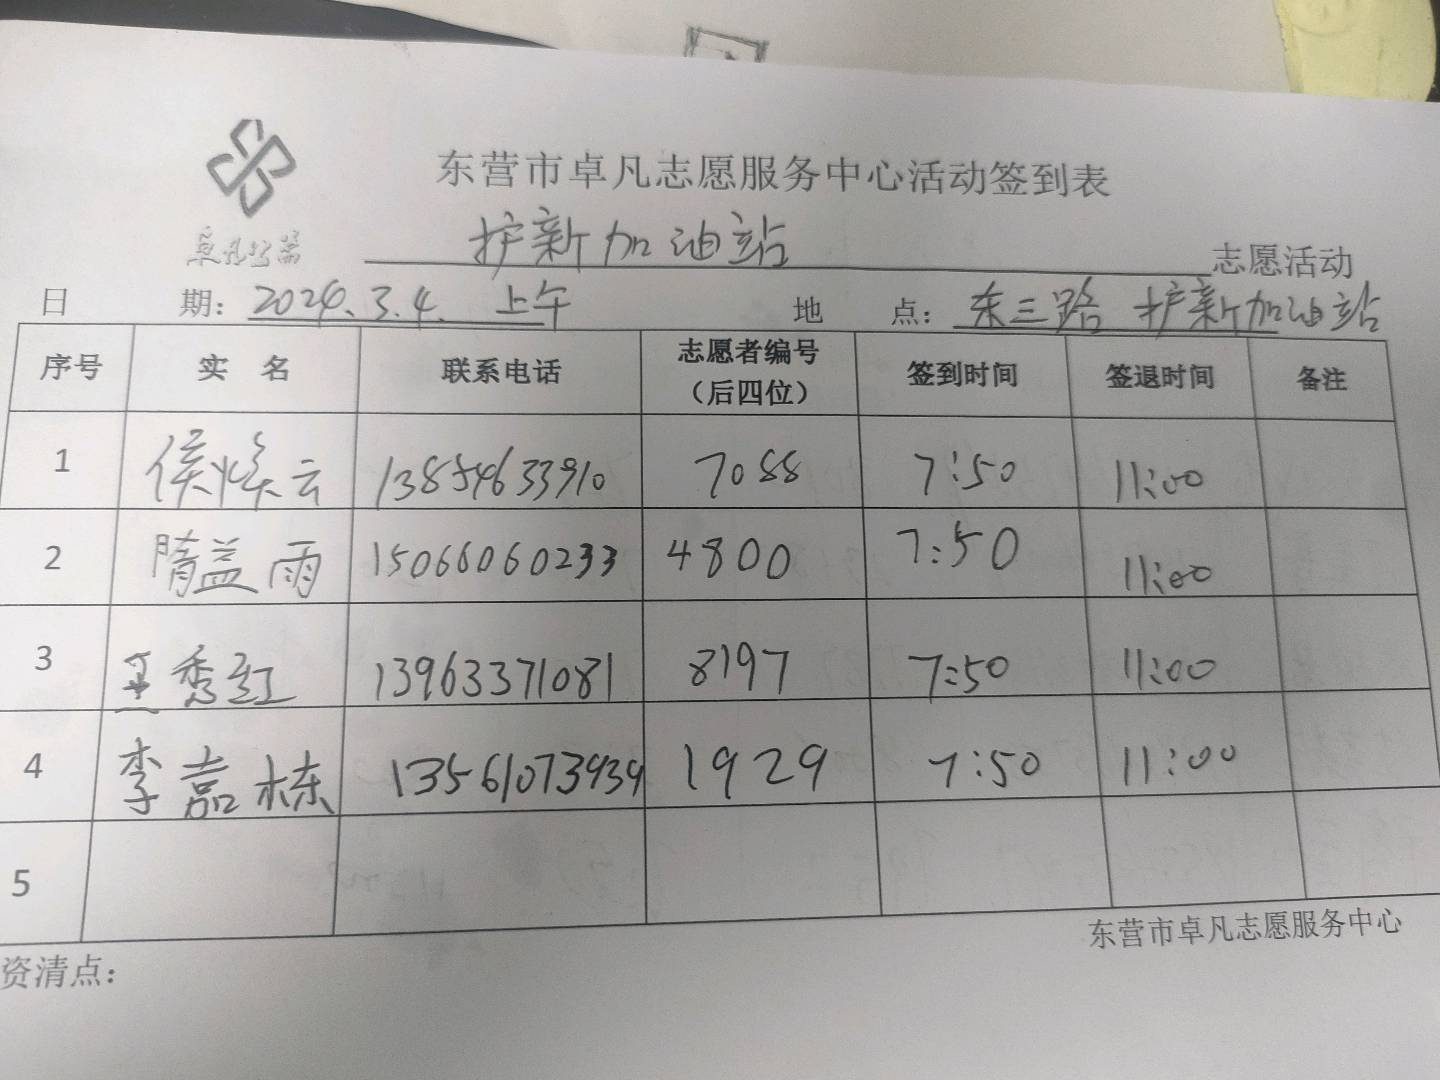 东营市卓凡志愿服务中心活动签到表
护新加油站 志愿活动
日 期：2024.3.4. 上午 地 点：东三路 护新加油站
序号 实 名 联系电话 志愿者编号（后四位） 签到时间 签退时间 备注
1 侯焕云 13854633910 7088 7:50 11:00
2 隋益雨 15066060233 4800 7:50 11:00
3 王秀红 13963371081 8197 7:50 11:00
4 李嘉栋 13561073939 1929 7:50 11:00
5
东营市卓凡志愿服务中心
资清点：